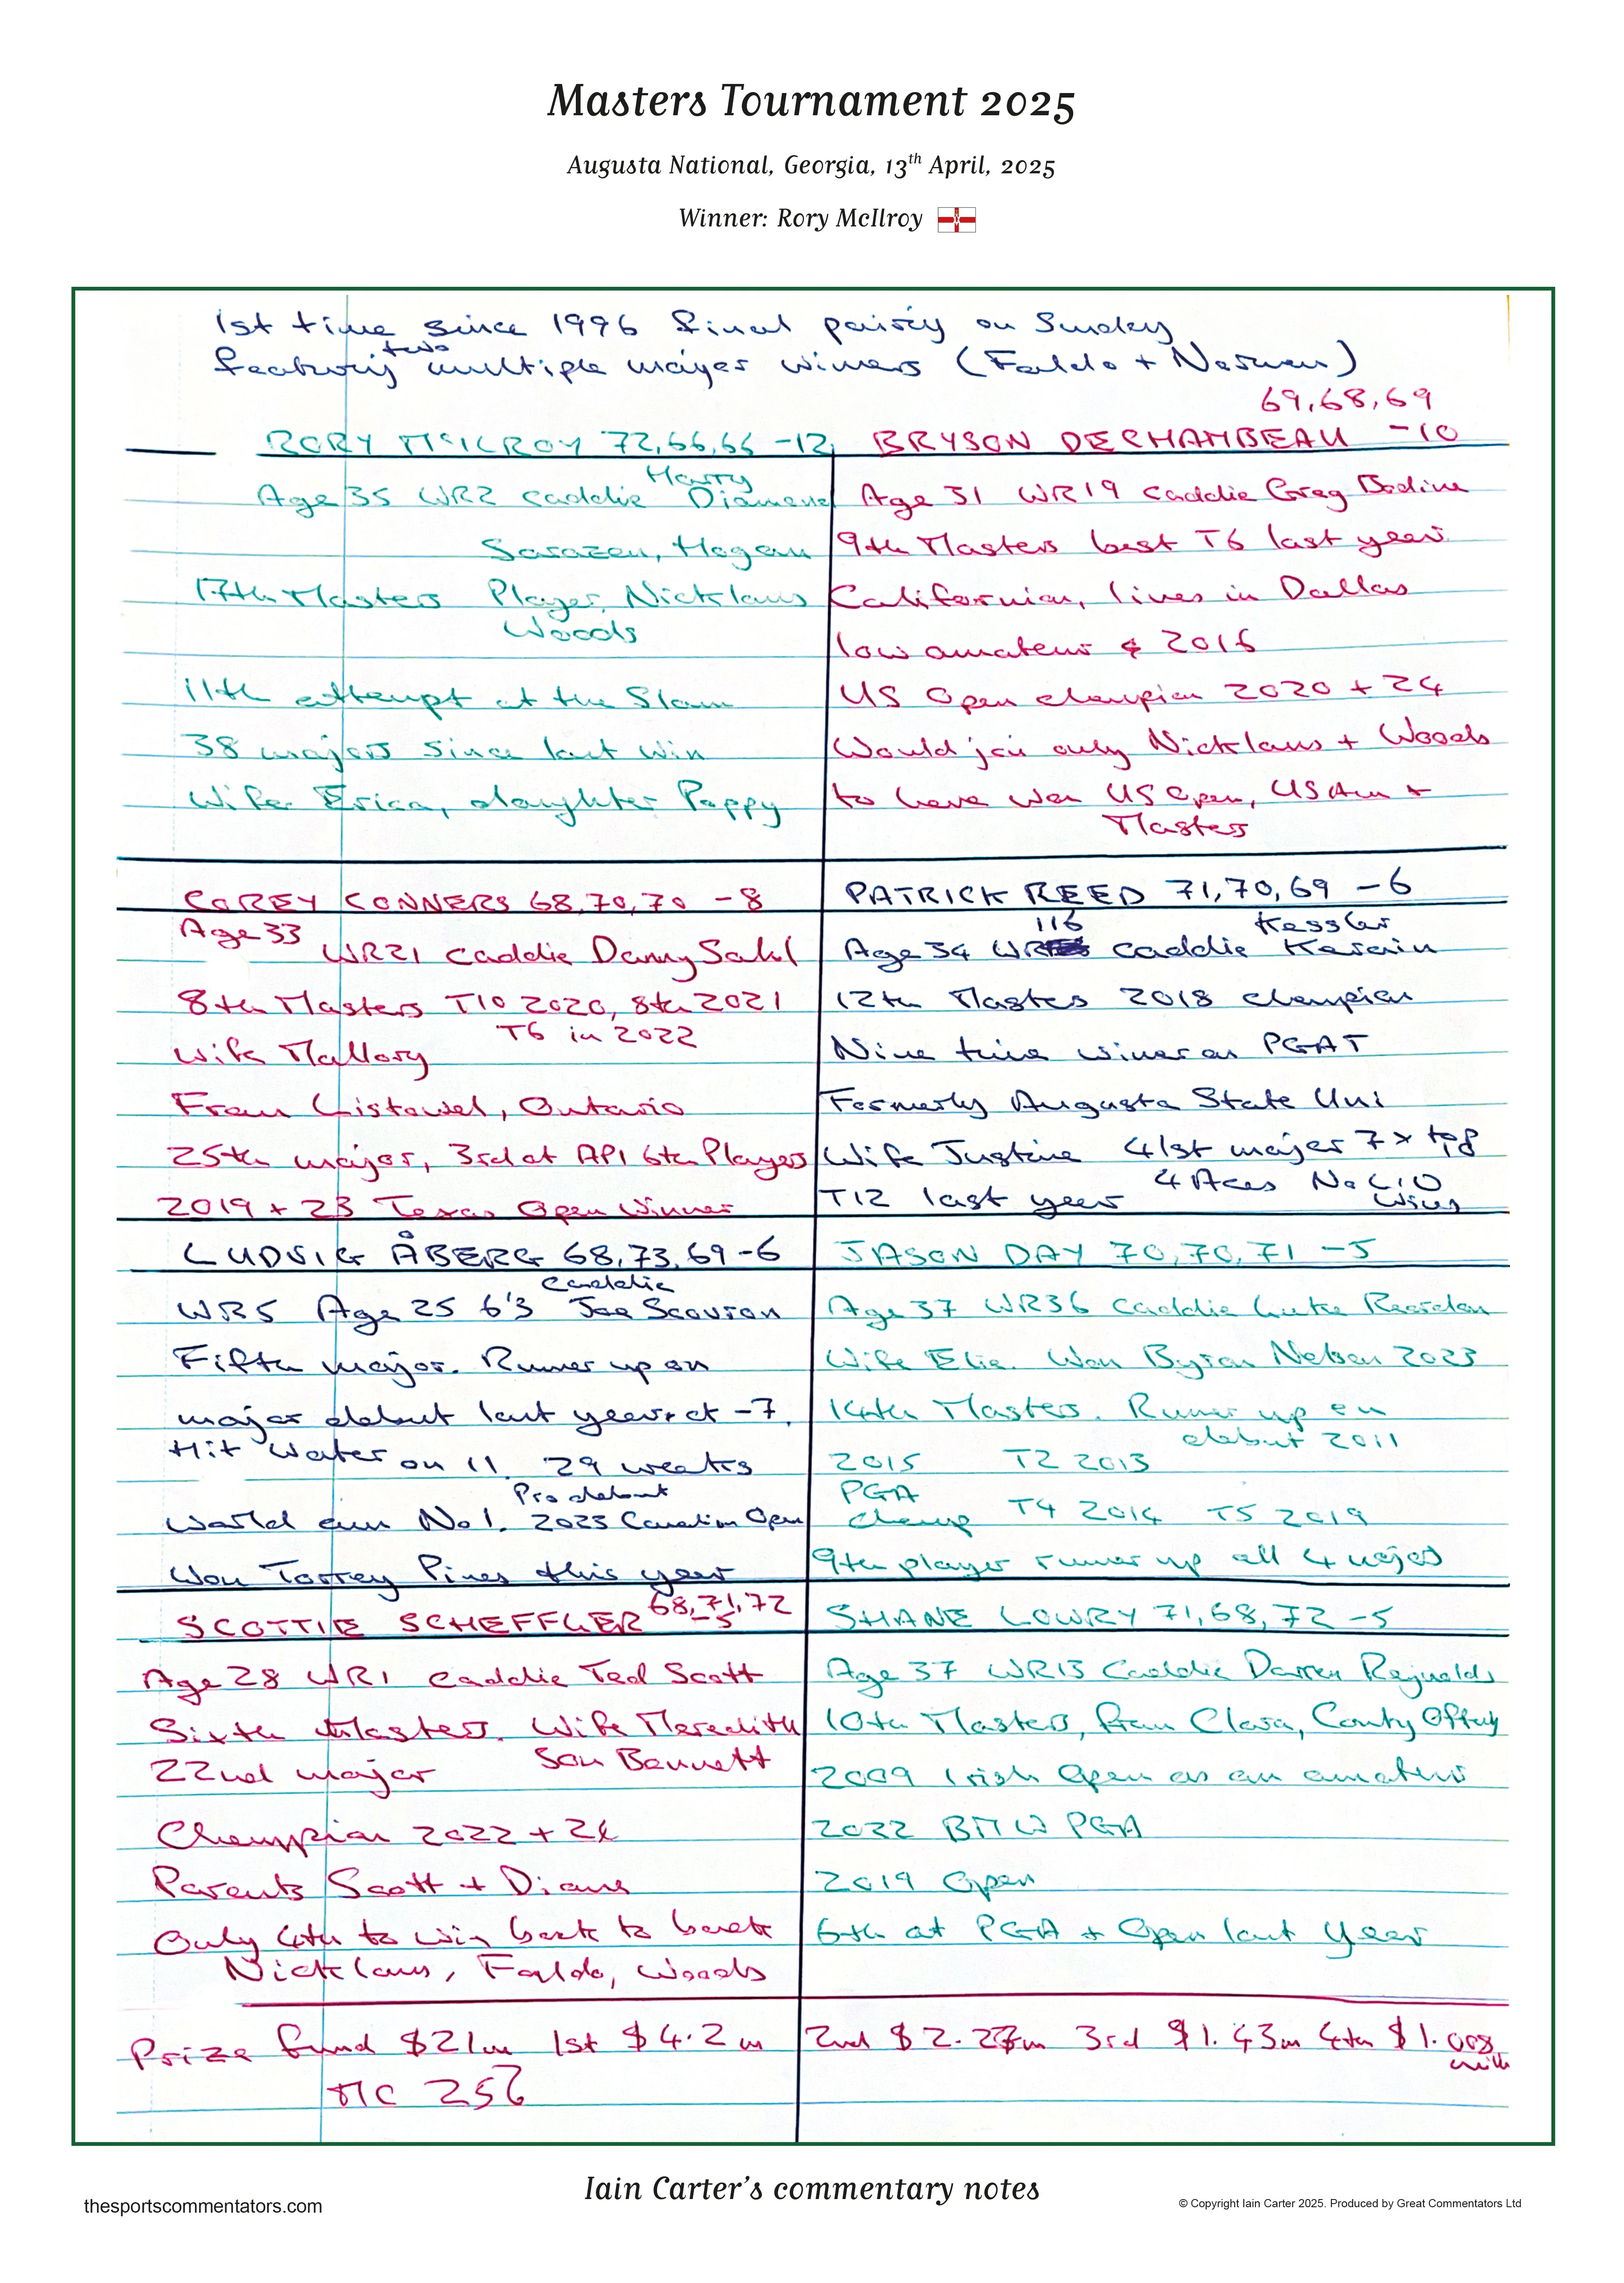 Masters Tournament 2025
Augusta National, Georgia, 13th April, 2025
Winner: Rory McIlroy
1st time since 1996 final pairing on Sunday
two
featuring multiple major winners (Faldo + Norman)
69,68,69
RORY McILROY 72,66,66 -12
BRYSON DECHAMBEAU -10
Harry
Age 35 WR2 caddie Diamond
Sarazen, Hogan
17th Masters Player, Nicklaus
Woods
11th attempt at the Slam
38 majors since last win
Wife Erica, daughter Poppy
Age 31 WR19 caddie Greg Bodine
9th Masters best T6 last year
Californian, lives in Dallas
low amateur 2016
US Open champion 2020 + 24
Would join only Nicklaus + Woods
to have won US Open, US Am +
Masters
COREY CONNERS 68,70,70 -8
Age 33
WR21 caddie Danny Sahl
8th Masters T10 2020, 8th 2021
T6 in 2022
Wife Mallory
From Listowel, Ontario
25th major, 3rd at API 6th Players
2019 + 23 Texas Open Winner
PATRICK REED 71,70,69 -6
116 Kessler
Age 34 WR caddie Karain
12th Masters 2018 champion
Nine time winner on PGAT
Formerly Augusta State Uni
Wife Justine 41st major 7 x top
T12 last year 4 Aces No LIV
wins
LUDVIG ÅBERG 68,73,69 -6
caddie
WR5 Age 25 6'3 Joe Scovron
Fifth major. Runner up on
major debut last year at -7.
Hit water on 11. 29 weeks
Pro debut
World am No1. 2023 Canadian Open
Won Torrey Pines this year
JASON DAY 70,70,71 -5
Age 37 WR36 caddie Luke Reardon
Wife Ellie. Won Byron Nelson 2023
14th Masters. Runner up on
debut 2011
2015 T2 2013
PGA
Champ T4 2014 T5 2019
9th player runner up all 4 majors
SCOTTIE SCHEFFLER 68,71,72
-5
Age 28 WR1 caddie Ted Scott
Sixth Masters. Wife Meredith
Son Bennett
22nd major
Champion 2022 + 24
Parents Scott + Diane
Only 4th to win back to back
Nicklaus, Faldo, Woods
SHANE LOWRY 71,68,72 -5
Age 37 WR13 Caddie Darren Reynolds
10th Masters, from Clara, County Offaly
2009 Irish Open as an amateur
2022 BMW PGA
2019 Open
6th at PGA + Open last year
Prize fund $21m 1st $4.2m 2nd $2.27m 3rd $1.43m 4th $1.008
mill
MC 256
Iain Carter's commentary notes
thesportscommentators.com
© Copyright Iain Carter 2025. Produced by Great Commentators Ltd